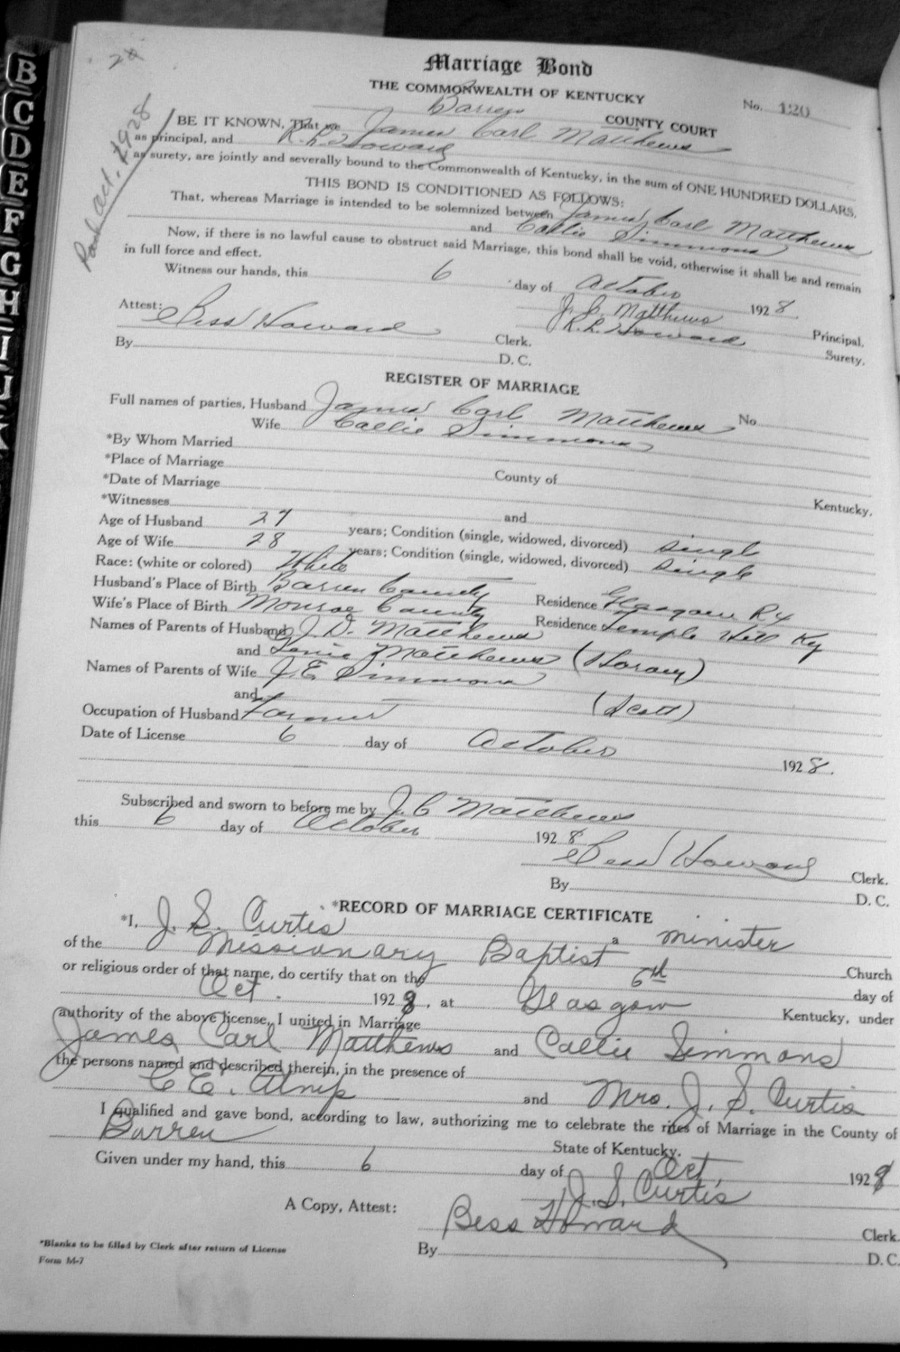 B
C
D
E
F
G
H
I
J
K
Marriage Bond
THE COMMONWEALTH OF KENTUCKY
No. 120
Barren COUNTY COURT
BE IT KNOWN, That we James Carl Matthews
as principal, and R. R. Howard
as surety, are jointly and severally bound to the Commonwealth of Kentucky, in the sum of ONE HUNDRED DOLLARS.
THIS BOND IS CONDITIONED AS FOLLOWS:
That, whereas Marriage is intended to be solemnized between James Carl Matthews
and Callie Simmons
Now, if there is no lawful cause to obstruct said Marriage, this bond shall be void, otherwise it shall be and remain
in full force and effect.
Witness our hands, this 6 day of October 1928
J. C. Matthews Principal.
Attest: Bess Howard Clerk. R. R. Howard Surety.
By D. C.
REGISTER OF MARRIAGE
Full names of parties, Husband James Carl Matthews No
Wife Callie Simmons
*By Whom Married
*Place of Marriage County of Kentucky.
*Date of Marriage
*Witnesses and
Age of Husband 27 years; Condition (single, widowed, divorced) single
Age of Wife 28 years; Condition (single, widowed, divorced) single
Race: (white or colored) White
Husband's Place of Birth Barren County Residence Glasgow
Wife's Place of Birth Monroe County Residence Temple Hill Ky
Names of Parents of Husband J. D. Matthews
and Matthews
Names of Parents of Wife J. E. Simmons
and (Scott)
Occupation of Husband Farmer
Date of License 6 day of October 1928.
Subscribed and sworn to before me by J. C Matthews
this 6 day of October 1928
Bess Howard Clerk.
By D. C.
*RECORD OF MARRIAGE CERTIFICATE
*I, J. S. Curtis a minister
of the Missionary Baptist Church
or religious order of that name, do certify that on the 6th day of
Oct. 1928, at Glasgow Kentucky, under
authority of the above license, I united in Marriage
James Carl Matthews and Callie Simmons
the persons named and described therein, in the presence of
C E. and Mrs. J. S. Curtis
I qualified and gave bond, according to law, authorizing me to celebrate the rites of Marriage in the County of
Barren State of Kentucky.
Given under my hand, this 6 day of Oct, 1928
J. S. Curtis
A Copy, Attest: Bess Howard Clerk.
By D. C.
*Blanks to be filled by Clerk after return of License
Form M-7